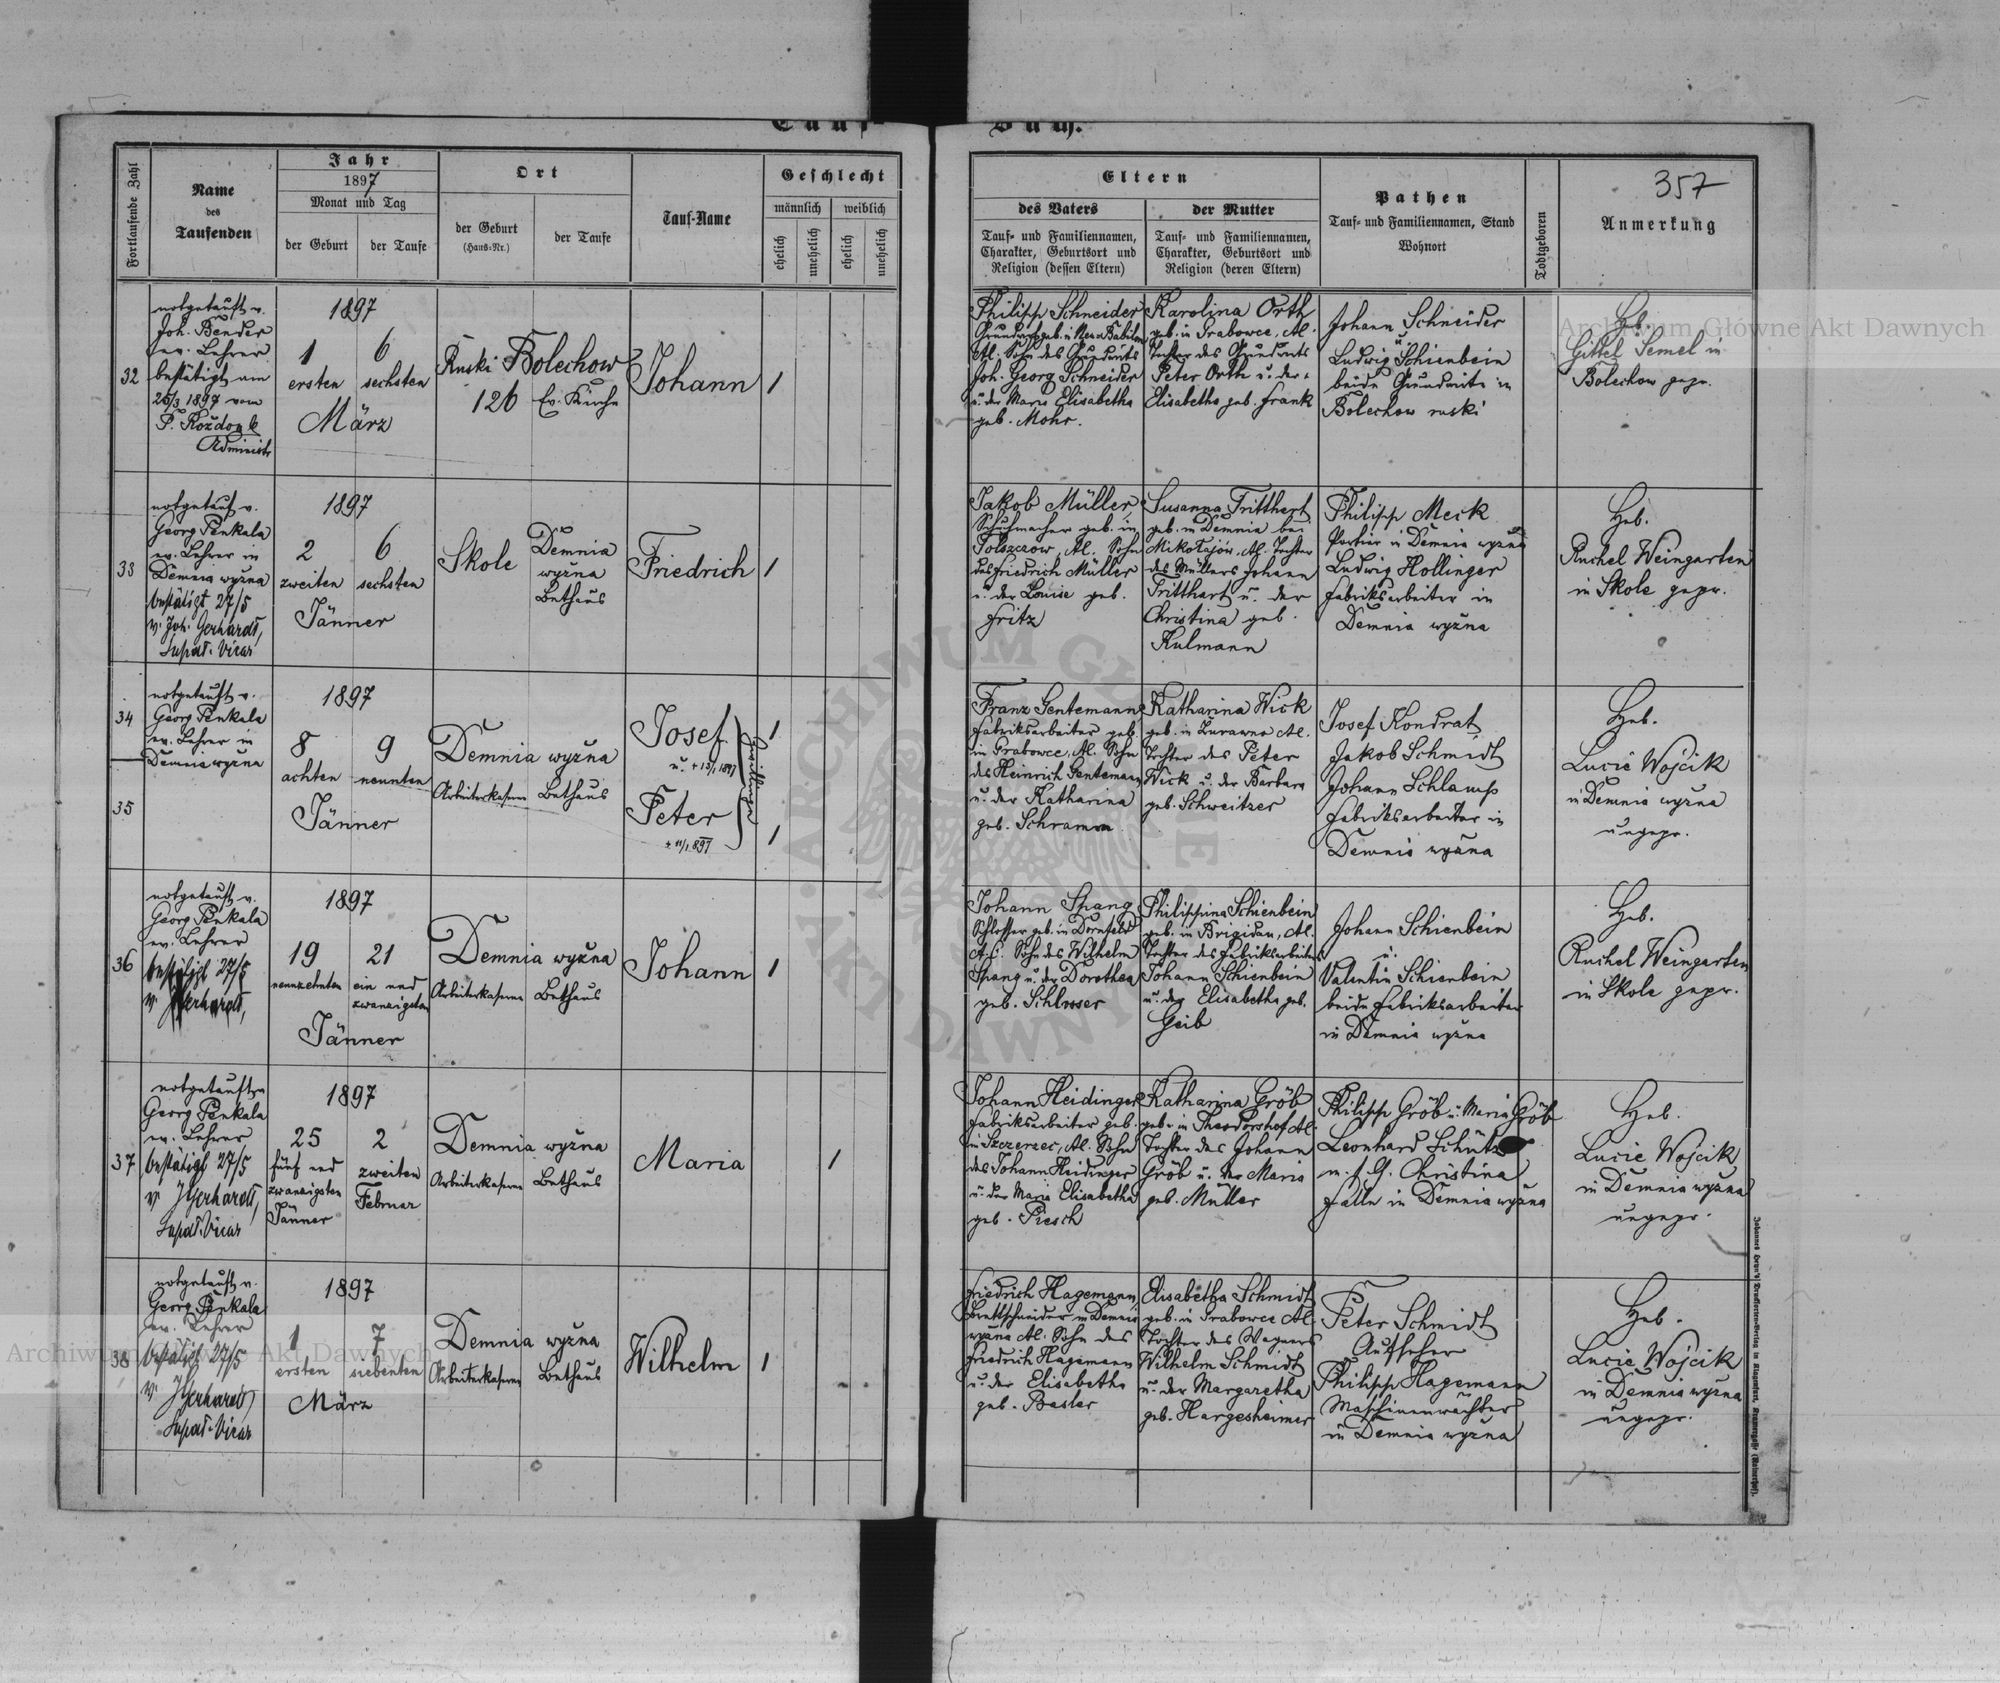 Tauf-
Buch.
Fortlaufende Zahl
Name
des
Taufenden
Jahr
1897
Monat und Tag
der Geburt
der Taufe
Ort
der Geburt
(Haus-Nr.)
der Taufe
Tauf-Name
Geschlecht
männlich
weiblich
ehelich
unehelich
ehelich
unehelich
Eltern
des Vaters
Tauf- und Familiennamen,
Charakter, Geburtsort und
Religion (dessen Eltern)
der Mutter
Tauf- und Familiennamen,
Charakter, Geburtsort und
Religion (deren Eltern)
Pathen
Tauf- und Familiennamen, Stand
Wohnort
Todtgeboren
357
Anmerkung
32
notgetauft v.
Joh. Bender
ev. Lehrer
bestätigt am
25/3 1897 vom
P. Roždonk
Administr
1897
1
ersten
6
sechsten
März
Ruski Bolechow
126
Ev. Kirche
Johann
1
Philipp Schneider
Grundwirt geb. in Neu Babilon
Al. Sohn des Grundwirts
Joh. Georg Schneider
u. der Maria Elisabetha
geb. Mohr.
Karolina Orth
geb. in Grabowce, Al.
Tochter des Grundwirts
Peter Orth u. der
Elisabetha geb. Frank
Johann Schneider
u.
Ludwig Schienbein
beide Grundwirte in
Bolechow ruski
Heb.
Gittel Semel in
Bolechow gepr.
33
notgetauft v.
Georg Penkala
ev. Lehrer in
Demnia wyzna
bestätigt 27/5
v. Joh. Gerhardt,
Supdt. Vicar
1897
2
zweiten
6
sechsten
Jänner
Skole
Demnia
wyzna
Bethaus
Friedrich
1
Jakob Müller
Schuhmacher geb. in
Polszczow, Al. Sohn
des Friedrich Müller
u. der Louise geb.
Fritz
Susanna Tritthart
geb. in Demnia bei
Mikołajów, Al. Tochter
des Müllers Johann
Tritthart u. der
Christina geb.
Kulmann
Philipp Meck
Portier in Demnia wyzna
Ludwig Hollinger
Fabriksarbeiter in
Demnia wyzna
Heb.
Ruchel Weingarten
in Skole gepr.
34
35
notgetauft v.
Georg Penkala
ev. Lehrer in
Demnia wyzna
1897
8
achten
9
neunten
Jänner
Demnia wyzna
Arbeiterkaserne
Bethaus
Josef
u. + 13/1 1897
Peter
+ 11/1 897
Zwillinge
1
1
Franz Gentemann
Fabriksarbeiter geb.
in Grabowce, Al. Sohn
des Heinrich Gentemann
u. der Katharina
geb. Schramm
Katharina Wick
geb. in Zurawno Al.
Tochter des Peter
Wick u. der Barbara
geb. Schweitzer
Josef Kondrat
Jakob Schmidt
Johann Schlamp
Fabriksarbeiter in
Demnia wyzna
Heb.
Lucie Wojcik
in Demnia wyzna
ungepr.
36
notgetauft v.
Georg Penkala
ev. Lehrer
bestätigt 27/5
v. JGerhardt,
1897
19
neunzehnten
21
ein und
zwanzigsten
Jänner
Demnia wyzna
Arbeiterkaserne
Bethaus
Johann
1
Johann Spang
Schlosser geb. in Dornfeld
A.C. Sohn des Wilhelm
Spang u. der Dorothea
geb. Schlosser
Philippina Schienbein
geb. in Brigidau, Al.
Tochter des Fabriksarbeiters
Johann Schienbein
u. der Elisabetha geb.
Geib
Johann Schienbein
u.
Valentin Schienbein
beide Fabriksarbeiter
in Demnia wyzna
Heb.
Ruchel Weingarten
in Skole gepr.
37
notgetauft v.
Georg Penkala
ev. Lehrer
bestätigt 27/5
v. JGerhardt,
Supdt. Vicar
1897
25
fünf und
zwanzigsten
Jänner
2
zweiten
Februar
Demnia wyzna
Arbeiterkaserne
Bethaus
Maria
1
Johann Heidinger
Fabriksarbeiter geb.
in Szczerzec, Al. Sohn
des Johann Heidinger
u. der Maria Elisabetha
geb. Piesch
Katharina Gröb
geb. in Theodorshof Al.
Tochter des Johann
Gröb u. der Maria
geb. Müller
Philipp Gröb u. Maria Gröb
Leonhard Schütz
m. f. G. Christina
Falle in Demnia wyzna
Heb.
Lucie Wojcik
in Demnia wyzna
ungepr.
38
notgetauft v.
Georg Penkala
ev. Lehrer
bestätigt 27/5
v. JGerhardt,
Supdt. Vicar
1897
1
ersten
7
siebenten
März
Demnia wyzna
Arbeiterkaserne
Bethaus
Wilhelm
1
Friedrich Hagemann
Brettschneider in Demnia
wyzna Al. Sohn des
Friedrich Hagemann
u. der Elisabetha
geb. Basler
Elisabetha Schmidt
geb. in Grabowce Al.
Tochter des Wagners
Wilhelm Schmidt
u. der Margaretha
geb. Hargesheimer
Peter Schmidt
Aufseher
Philipp Hagemann
Maschinenwächter
in Demnia wyzna
Heb.
Lucie Wojcik
in Demnia wyzna
ungepr.
Archiwum Główne Akt Dawnych
Archiwum Główne Akt Dawnych
ARCHIWUM GŁÓWNE AKT DAWNYCH